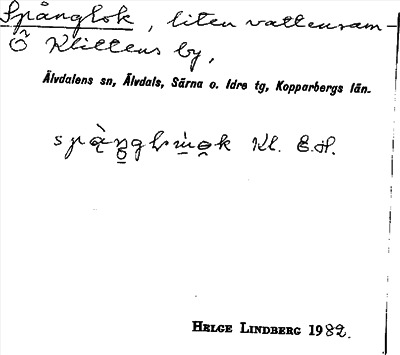 Spånglok, liten vattensam-
Ö Klittens by,
Älvdalens sn, Älvdals, Särna o. Idre tg, Kopparbergs län.
Kl. E.H.
HELGE LINDBERG 1982.